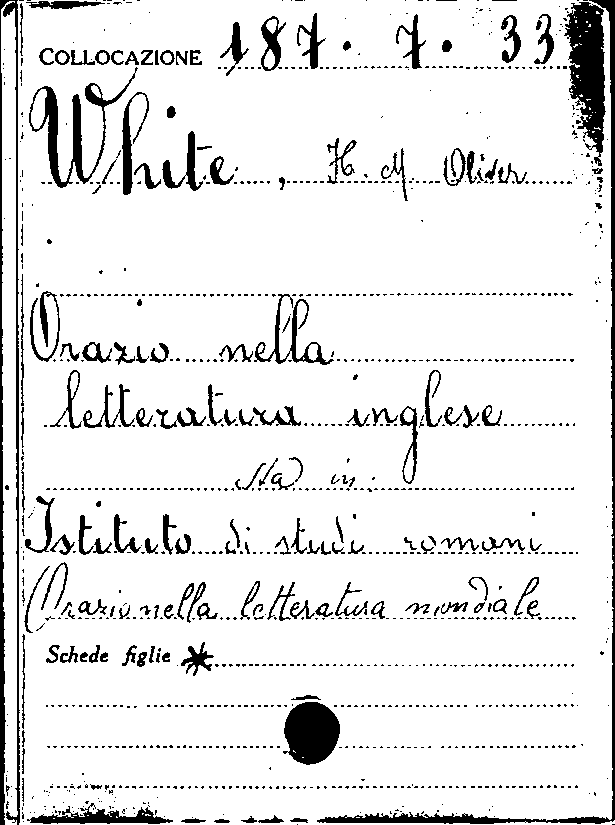 COLLOCAZIONE 187. 7. 33
White, H. M Oliver
Orazio nella
letteratura inglese
Sta in:
Istituto di studi romani
Orazio nella letteratura mondiale
Schede figlie *